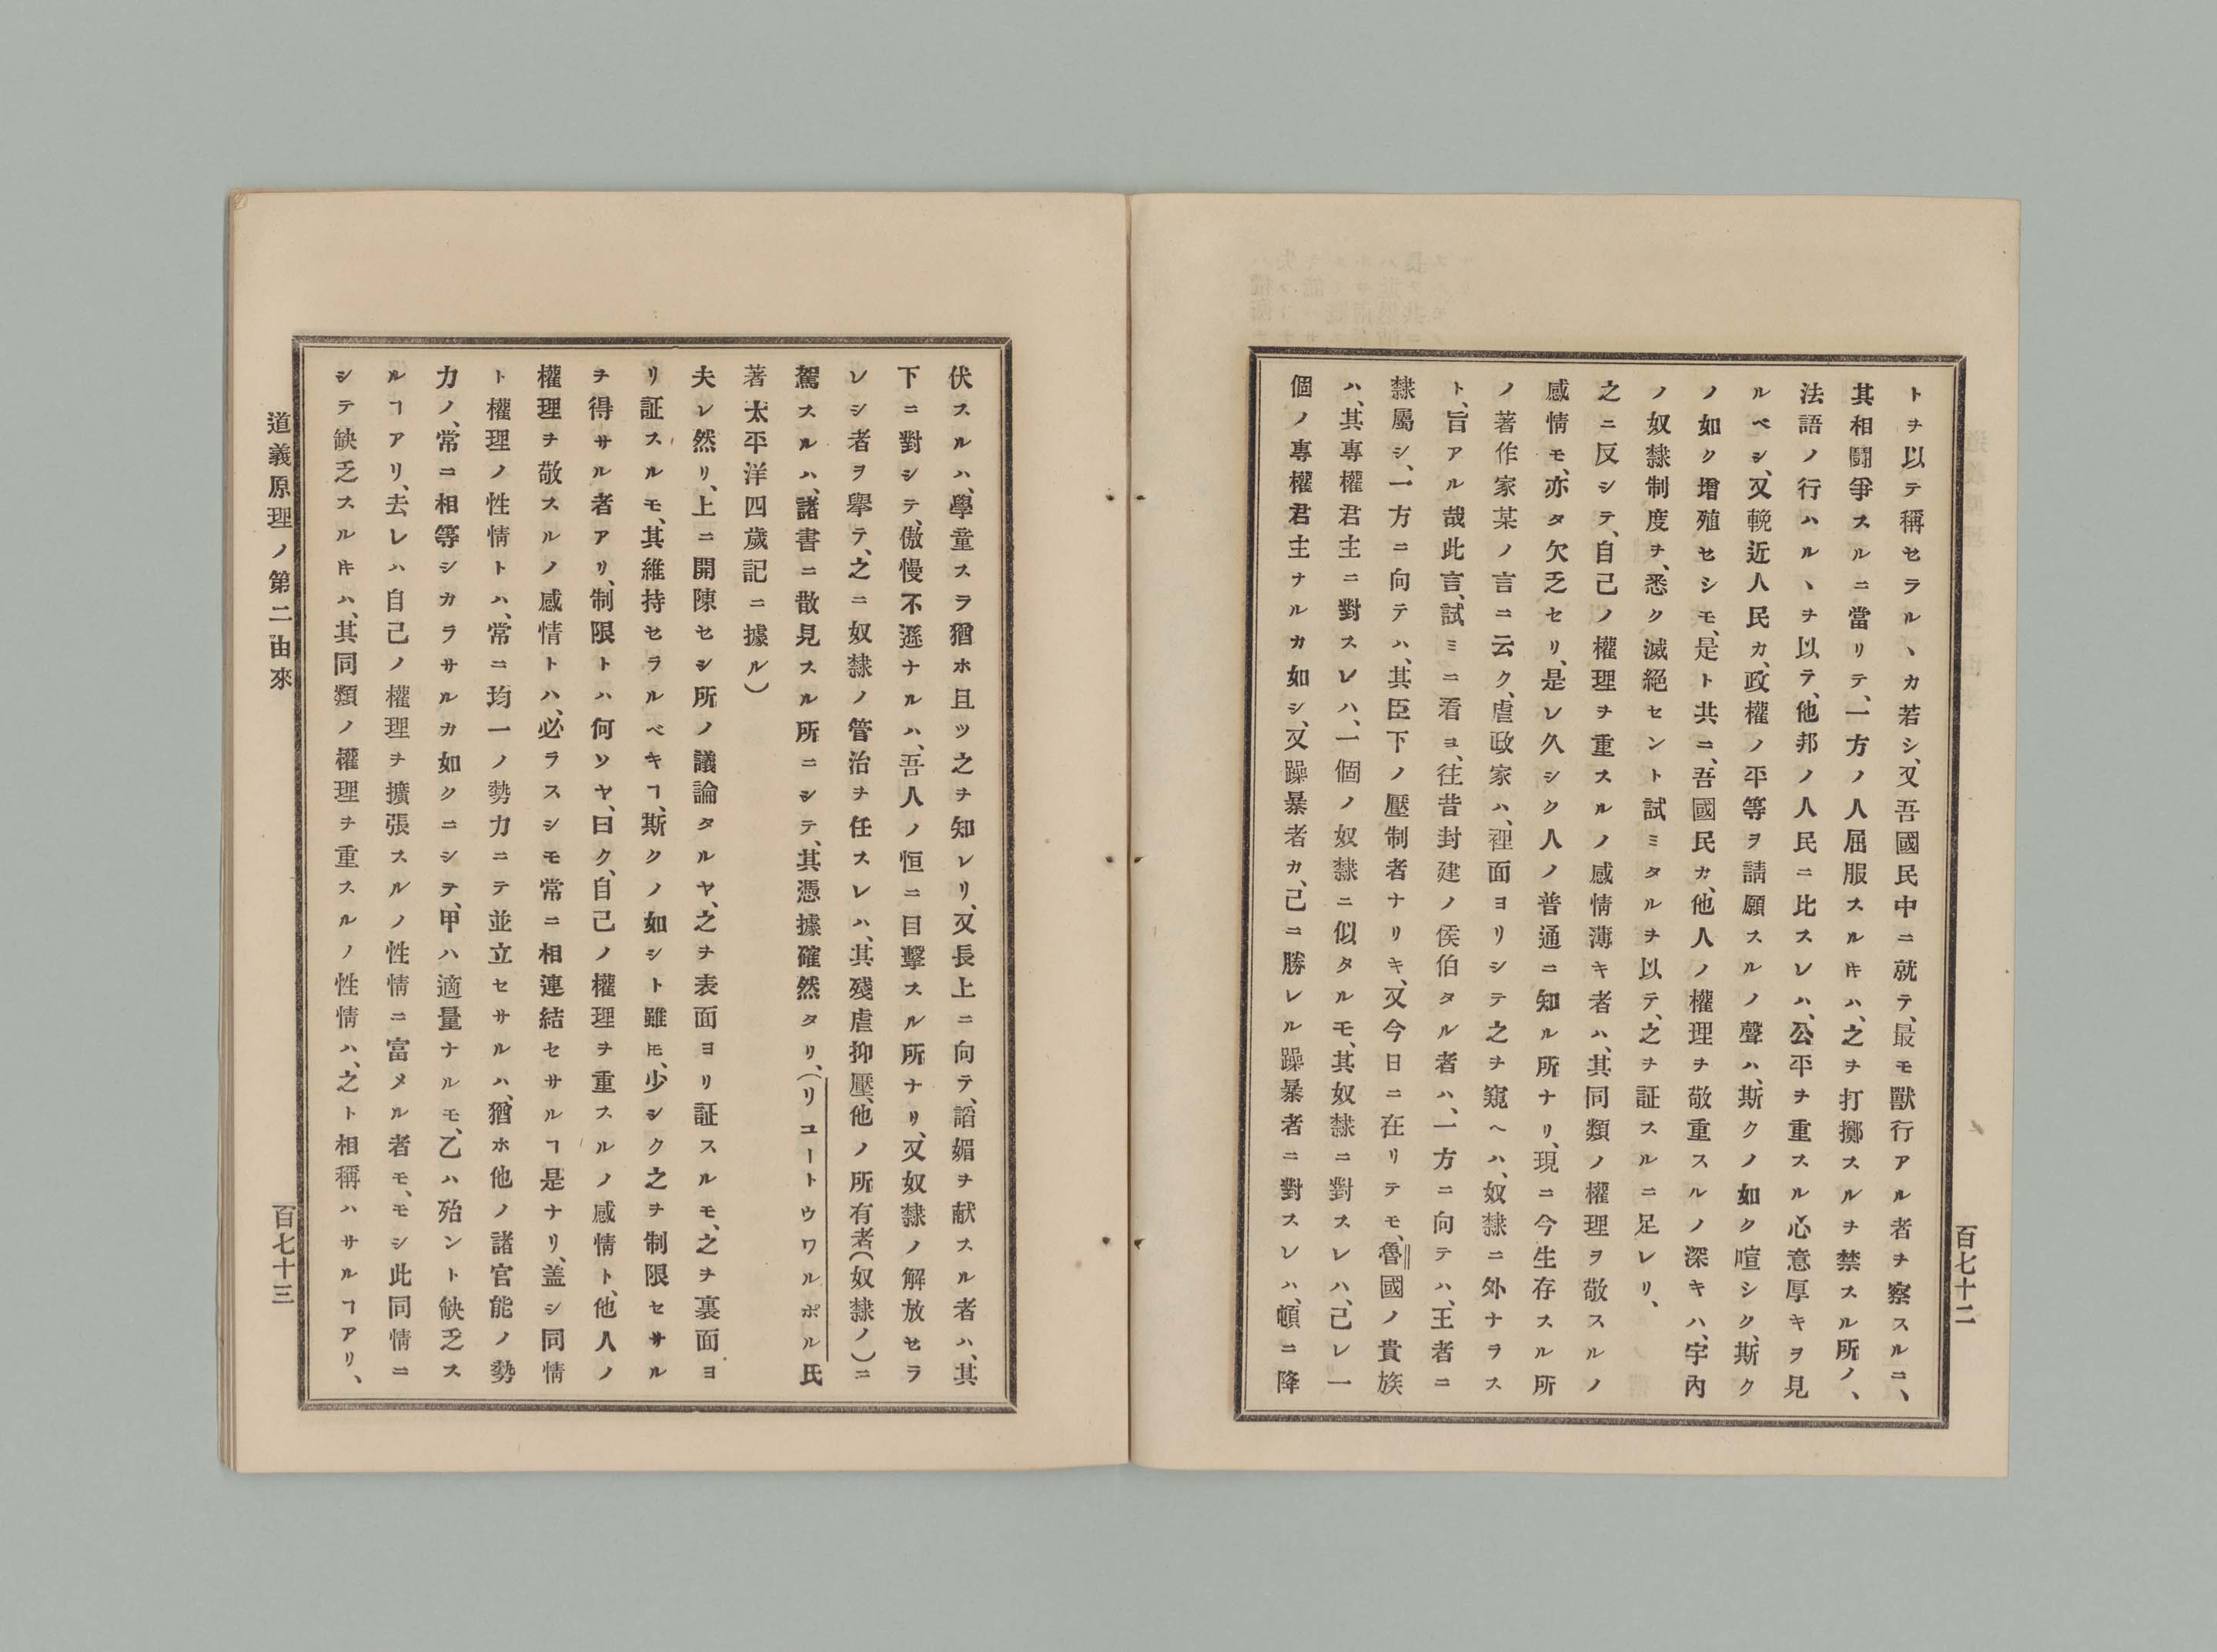 トヲ以テ稱セラルヽカ若シ、又吾國民中ニ就テ、最モ獸行アル者ヲ察スルニ、
其相鬪爭スルニ當リテ、一方ノ人屈服スルヰハ、之ヲ打擲スルヲ禁スル所ノ、
法語ノ行ハルヽヲ以テ、他邦ノ人民ニ比スレハ、公平ヲ重スル心意厚キヲ見
ルベシ、又輓近人民カ、政權ノ平等ヲ請願スルノ聲ハ、斯クノ如ク喧シク、斯ク
ノ如ク增殖セシモ、是ト共ニ、吾國民カ、他人ノ權理ヲ敬重スルノ深キハ、宇內
ノ奴隷制度ヲ、悉ク滅絕セント試ミタルヲ以テ、之ヲ証スルニ足レリ、
之ニ反シテ、自己ノ權理ヲ重スルノ感情薄キ者ハ、其同類ノ權理ヲ敬スルノ
感情モ、亦タ欠乏セリ、是レ久シク人ノ普通ニ知ル所ナリ、現ニ今生存スル所
ノ著作家某ノ言ニ云ク、虐政家ハ、裡面ヨリシテ之ヲ窺ヘハ、奴隷ニ外ナラス
ト、旨アル哉此言、試ミニ看ヨ、往昔封建ノ侯伯タル者ハ、一方ニ向テハ、王者ニ
隸屬シ、一方ニ向テハ、其臣下ノ壓制者ナリキ、又今日ニ在リテモ、魯國ノ貴族
ハ、其專權君主ニ對スレハ、一個ノ奴隸ニ似タルモ、其奴隸ニ對スレハ、己レ一
個ノ專權君主ナルカ如シ、又躁暴者カ、己ニ勝レル躁暴者ニ對スレハ、頓ニ降
百七十二
伏スルハ、學童スラ猶ホ且ツ之ヲ知レリ、又長上ニ向テ、謟媚ヲ献スル者ハ、其
下ニ對シテ、傲慢不遜ナルハ、吾人ノ恒ニ目擊スル所ナリ、又奴隸ノ解放セラ
レシ者ヲ擧テ、之ニ奴隸ノ管治ヲ任スレハ、其殘虐抑壓、他ノ所有者(奴隸ノ)ニ
駕スルハ、諸書ニ散見スル所ニシテ、其憑據確然タリ、(リユートウワルポル氏
著太平洋四歲記ニ據ル)
夫レ然リ、上ニ開陳セシ所ノ議論タルヤ、之ヲ表面ヨリ証スルモ、之ヲ裏面ヨ
リ証スルモ、其維持セラルベキヿ、斯クノ如シト雖𪜈、少シク之ヲ制限セサル
ヲ得サル者アリ、制限トハ何ソヤ、曰ク、自己ノ權理ヲ重スルノ感情ト、他人ノ
權理ヲ敬スルノ感情トハ、必ラスシモ常ニ相連結セサルヿ是ナリ、盖シ同情
ト權理ノ性情トハ、常ニ均一ノ勢力ニテ並立セサルハ、猶ホ他ノ諸官能ノ勢
力ノ、常ニ相等シカラサルカ如クニシテ、甲ハ適量ナルモ、乙ハ殆ント缺乏ス
ルヿアリ、去レハ自己ノ權理ヲ擴張スルノ性情ニ富メル者モ、モシ此同情ニ
シテ缺乏スルヰハ、其同類ノ權理ヲ重スルノ性情ハ、之ト相稱ハサルヿアリ、
道義原理ノ第二由來
百七十三